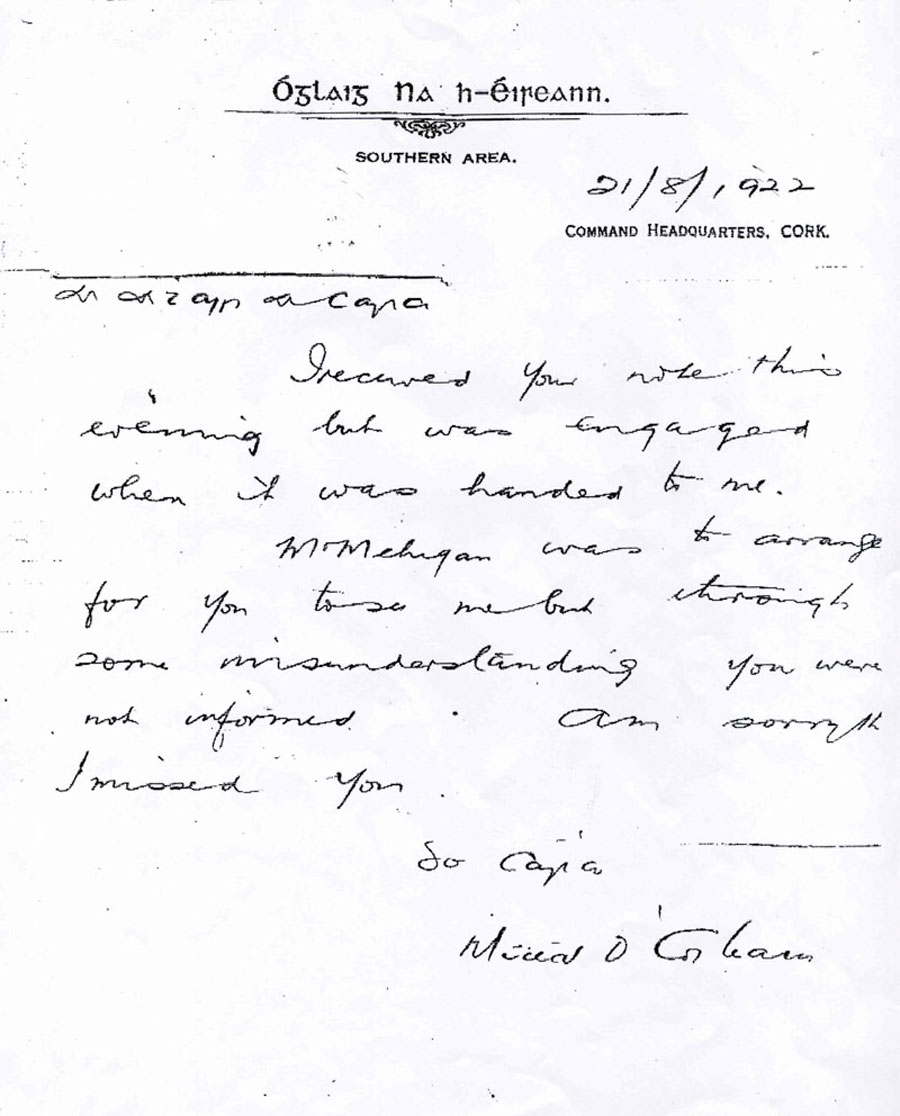 Óglaiġ na h-Éireann.
SOUTHERN AREA.
21/8/1922
COMMAND HEADQUARTERS, CORK.
a Cara
I received your note this
evening but was engaged
when it was handed to me.
McMehigan was to arrange
for you to see me but through
some misunderstanding you were
not informed. Am sorry th
I missed you.
Do Cara